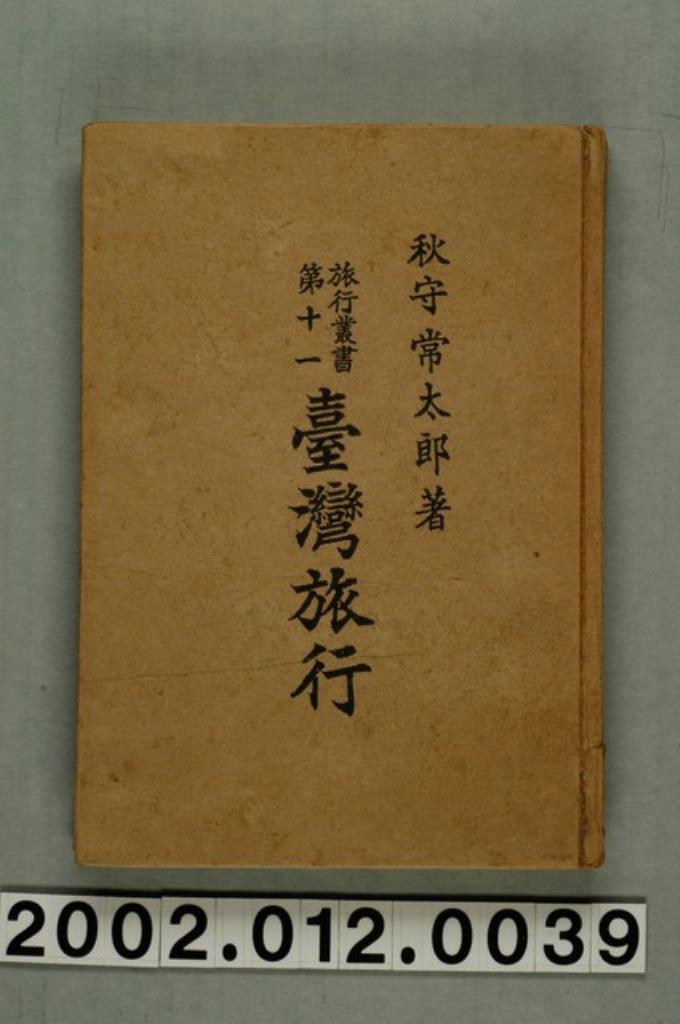 秋守常太郎著
旅行叢書
第十一
臺灣旅行
2002.012.0039